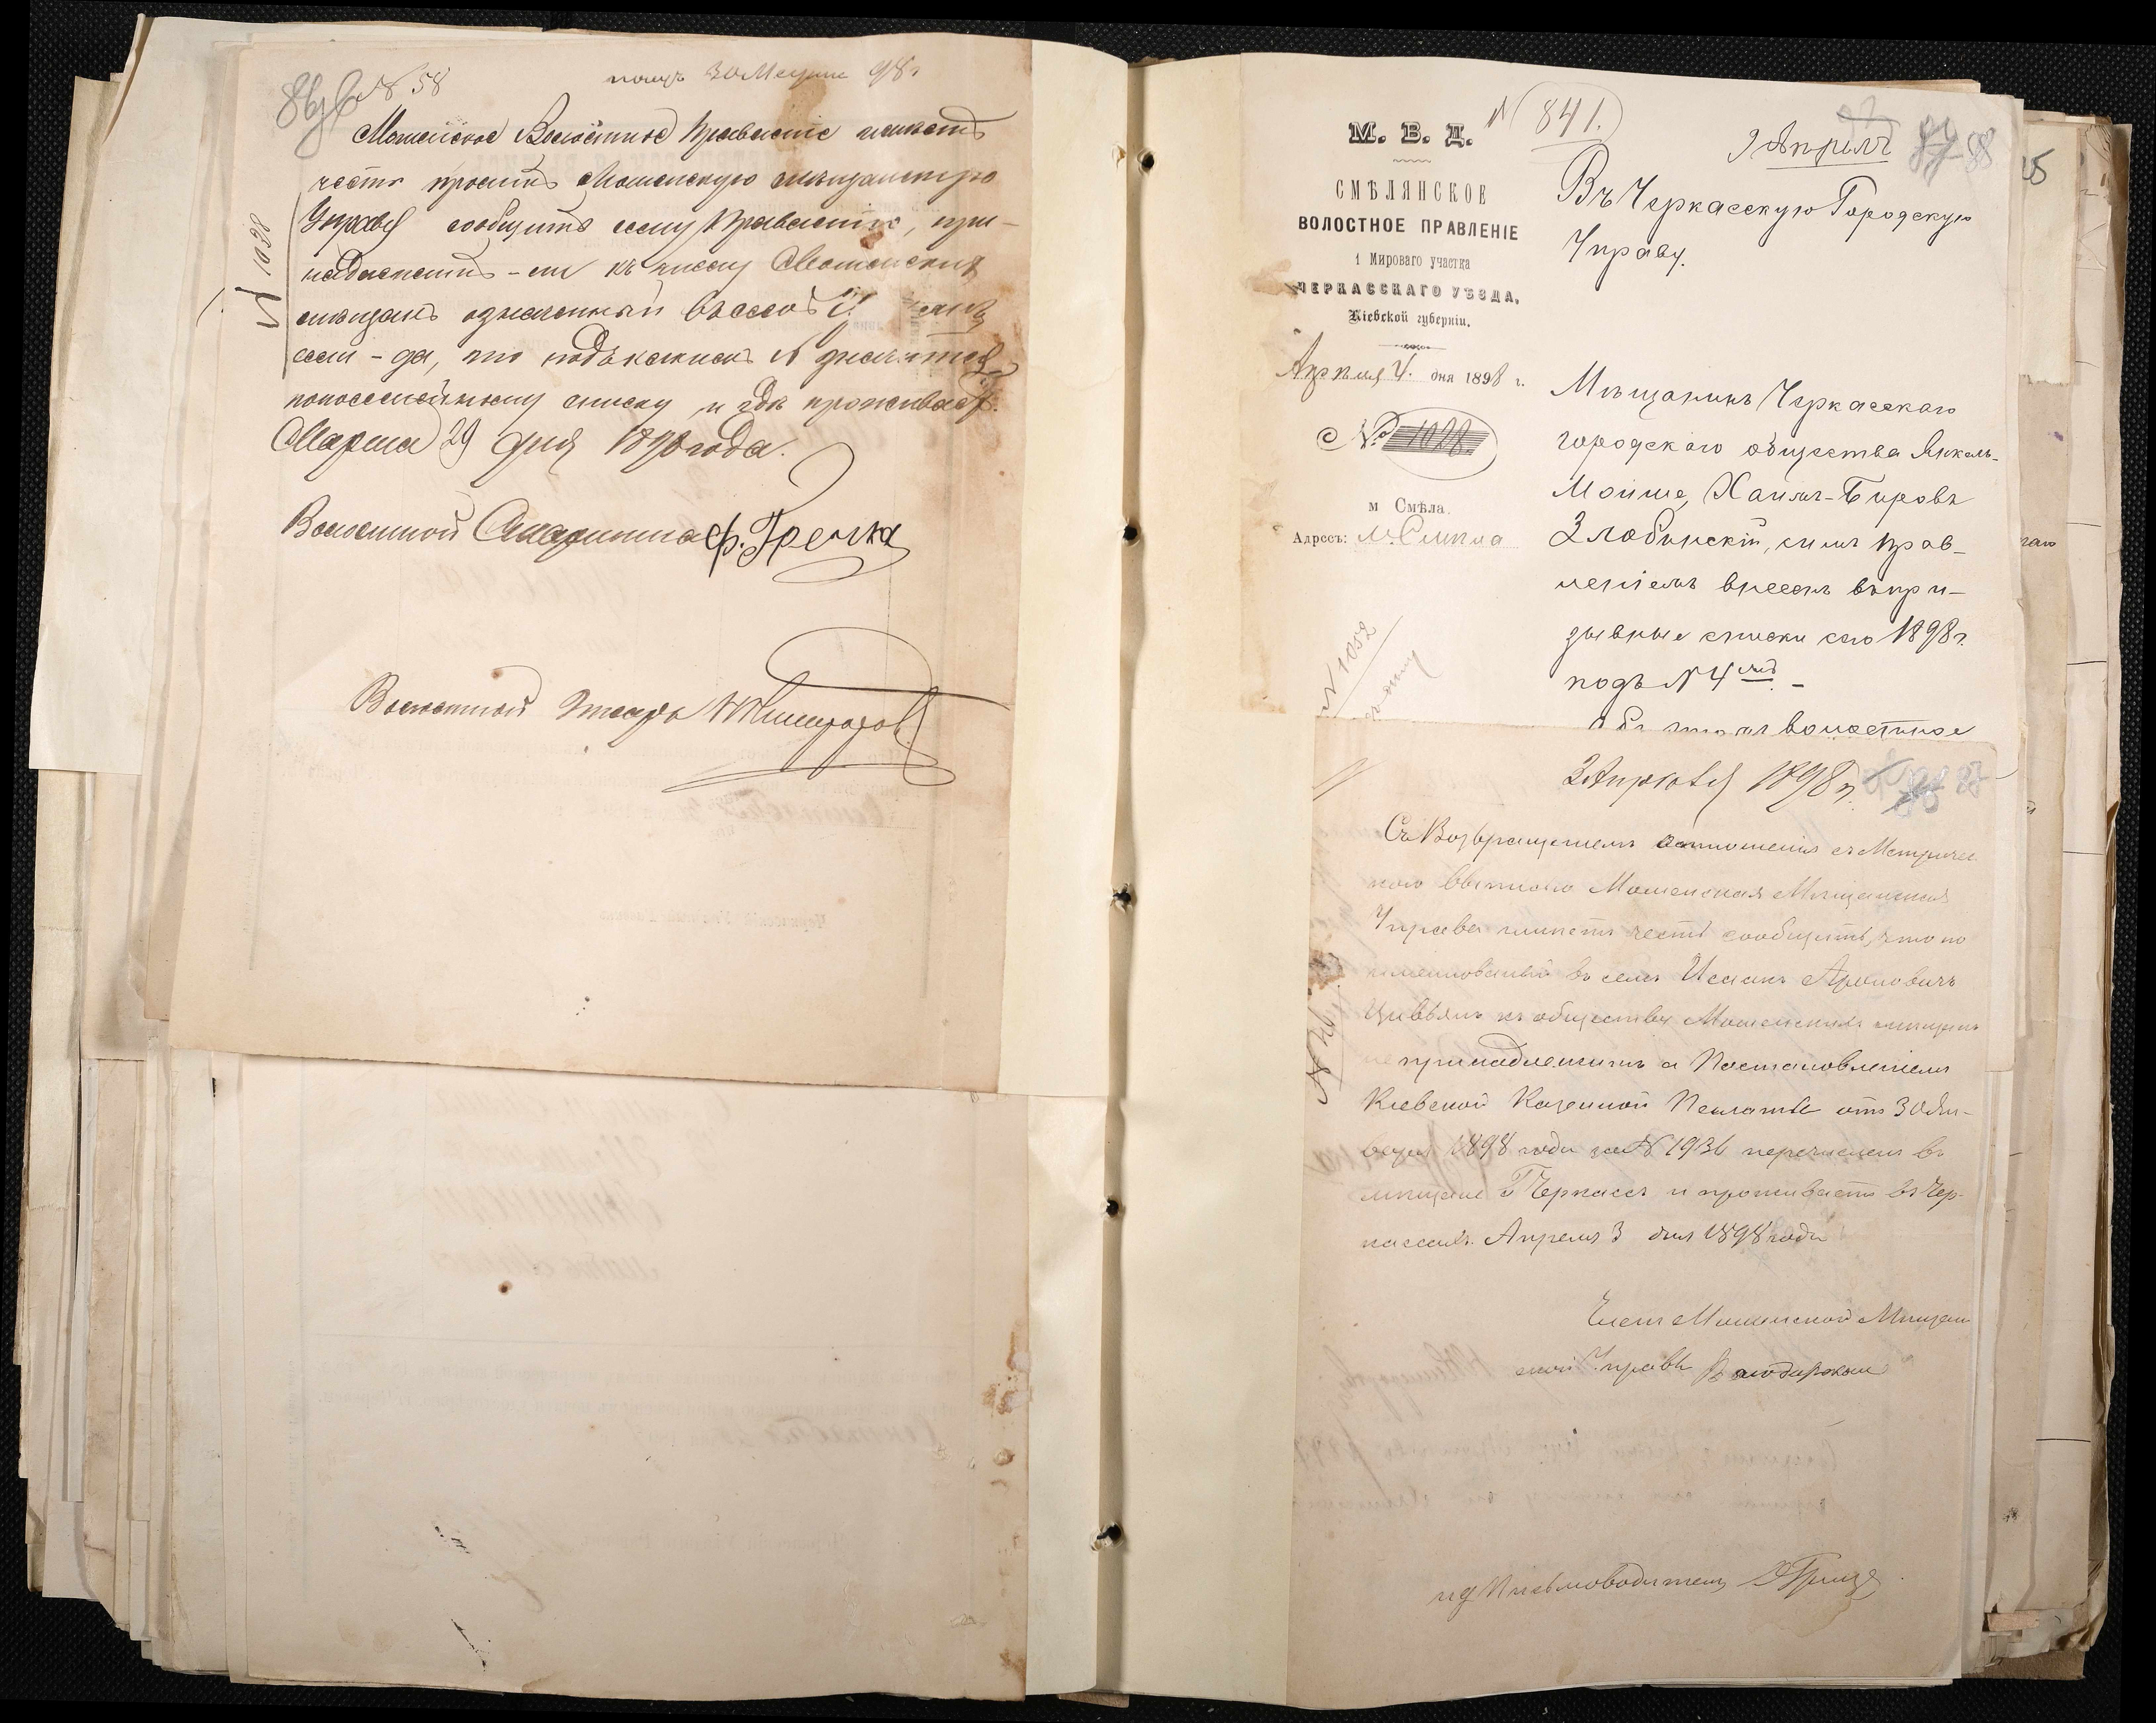 86 об
N 58
получ 30 Марта 98 г
Мошенское Волостное Правление имеетъ
честь просить Мошенскую мѣщанскую
Управу сообщить сему Правленію, при-
надлежитъ-ли къ числу Мошенскихъ
мѣщанъ означенный въ семъ
если-да, то подъ какимъ N значится
по посемейному списку и гдѣ проживаетъ.
Марта 29 дня 1898 года.
N 1038
Волостной Старшина Ф. Гречка
Волостной Писарь
М. В. Д.
N 841.
9 Апрѣля
88
СМѢЛЯНСКОЕ
ВОЛОСТНОЕ ПРАВЛЕНІЕ
1 Мироваго участка
ЧЕРКАССКАГО УѢЗДА,
Кіевской губерніи.
Апрѣля 4. дня 1898 г.
№ 1028
м Смѣла.
Адресъ: м. Смѣла
N 1052
Въ Черкасскую Городскую
Управу.
Мѣщанинъ Черкасскаго
городскаго общества Янкель-
Мойше, Хаимъ-Беровъ
Злобинскій, симъ Прав-
леніемъ внесенъ въ при-
зывные списки сего 1898 г.
подъ N 4
волостное
3 Апрѣля 1898 г.
Съ Возвращеніемъ отношенія съ Метричес
кою выпискою Мошенская Мѣщанская
Управа имѣетъ честь сообщить, что по
именованный въ семъ Исаакъ Ароновичъ
Цивьянъ къ обществу Мошенскихъ мѣщанъ
не принадлежитъ а Постановленіемъ
Кіевской Казенной Палаты отъ 30 Ян-
варя 1898 года за N 1936 перечисленъ въ
мѣщане г Черкассъ и проживаетъ въ Чер-
кассахъ. Апреля 3 дня 1898 года
Членъ Мошенской Мѣщан
ской Управы
и д Письмоводителя